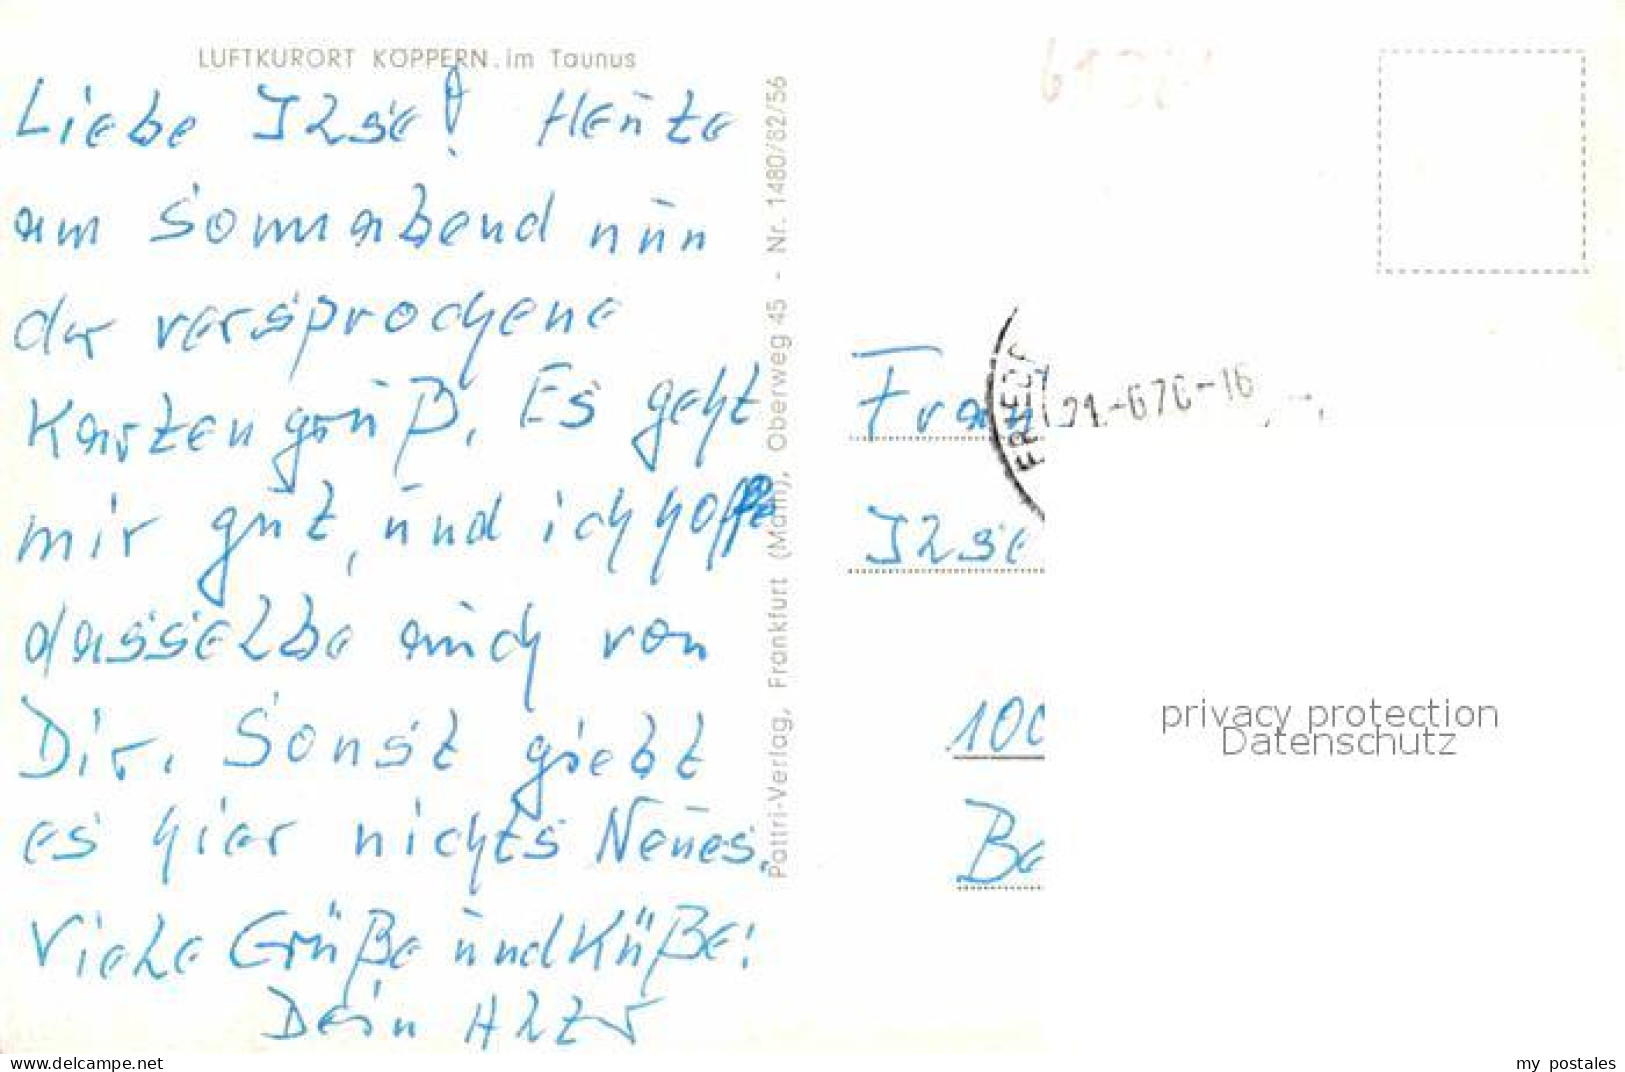 LUFTKURORT KÖPPERN im Taunus
Liebe Ilse! Heute
am Sonnabend nun
der versprochene
Kartengruß. Es geht
mir gut, und ich hoffe
dasselbe auch von
Dir. Sonst giebt
es hier nichts Neues.
Viele Grüße und Küße!
Dein Alter
Pattri-Verlag, Frankfurt (Main), Oberweg 45 - Nr. 1480/82/56
FRIED
21.-670-16
Frau
Ilse
100
Be
privacy protection
Datenschutz
delcampe.net
my_postales